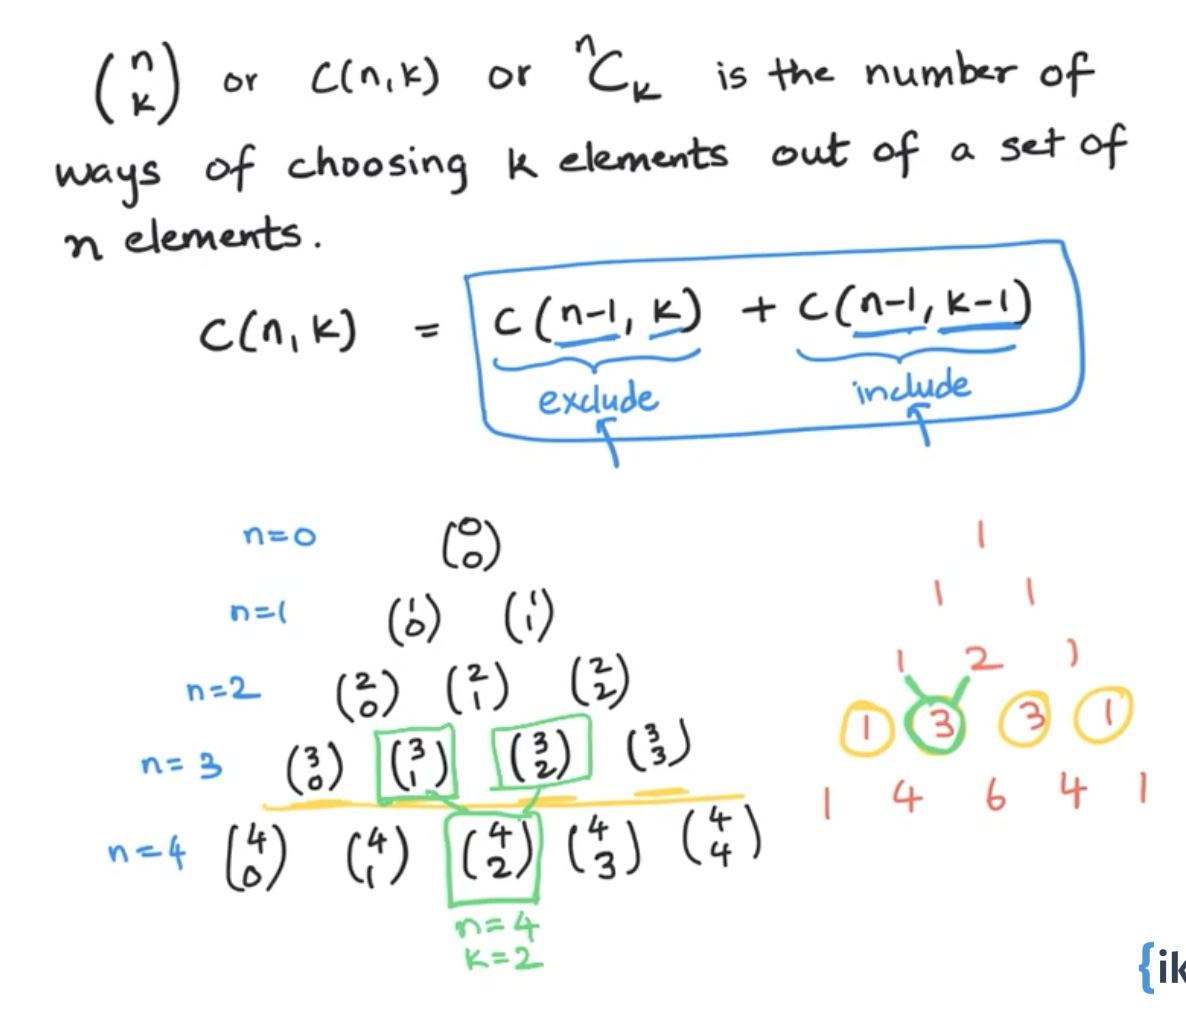 (n k) or C(n,k) or ⁿCₖ is the number of
ways of choosing k elements out of a set of
n elements.
C(n,k) = C(n-1, k) + C(n-1, k-1)
exclude include
n=0 (0 0) 1
n=1 (1 0) (1 1) 1 1
n=2 (2 0) (2 1) (2 2) 1 2 1
n=3 (3 0) (3 1) (3 2) (3 3) 1 3 3 1
n=4 (4 0) (4 1) (4 2) (4 3) (4 4) 1 4 6 4 1
n=4
k=2
{ik